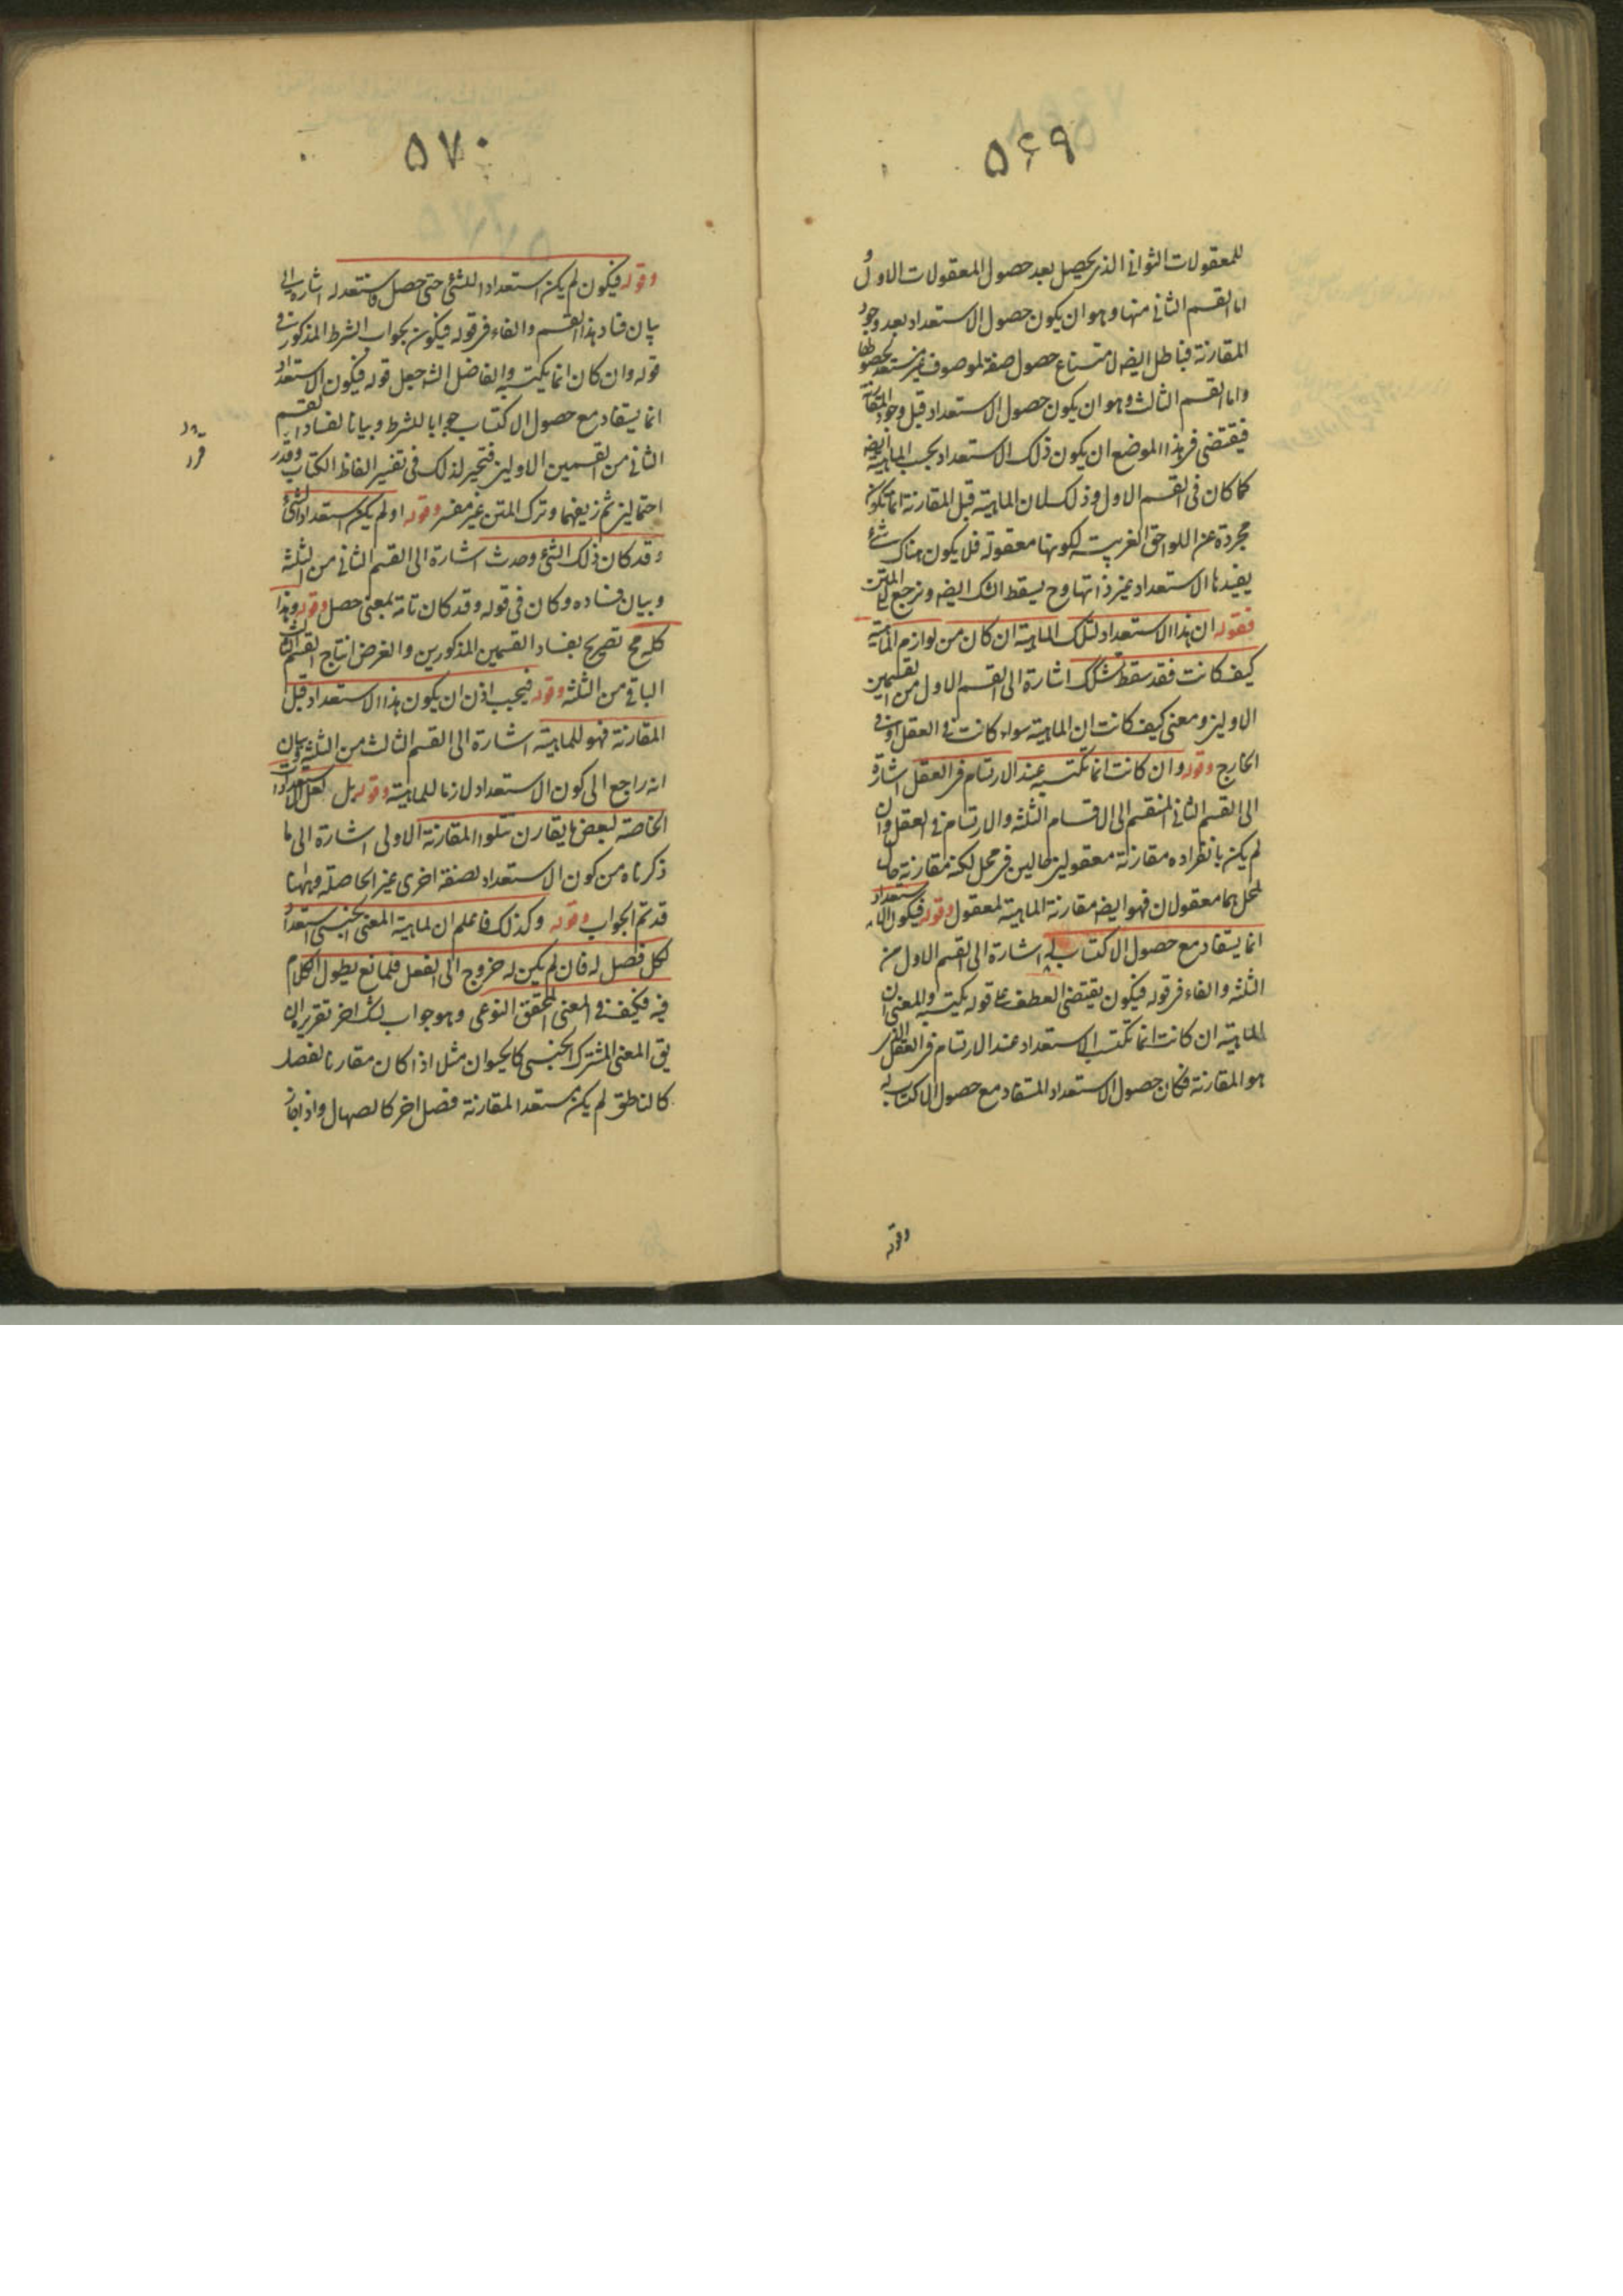 ۵۶۹
للمعقولات الثوانى الذى يحصل بعد حصول المعقولات الاول و
اما القسم الثانى منها وهو ان يكون حصول الاستعداد بعد وجود
المقارنة فباطل ايضه لامتناع حصول صفة لموصوف غير مستعد لحصولها
واما القسم الثالث وهو ان يكون حصول الاستعداد قبل وجود المقارنة
فيقتضى فى هذا الموضع ان يكون ذلك الاستعداد بحسب الماهية ايضه
كما كان فى القسم الاول وذلك لان الماهية قبل المقارنة انما تكون
مجردة عن اللواحق الغريبة لكونها معقولة فلا يكون هناك شئ
يفيدها الاستعداد غير ذاتها وح يسقط الشك ايضه ونرجع الى المتن
فقوله ان هذا الاستعداد لتلك الماهية ان كان من لوازم الماهية
كيف كانت فقد سقط تشكك اشارة الى القسم الاول من القسمين
الاولين ومعنى كيف كانت ان الماهية سواء كانت فى العقل او فى
الخارج وقوله وان كانت انما تكتسبه عند الارتسام فى العقل اشارة
الى القسم الثانى المنقسم الى الاقسام الثلثة والارتسام فى العقل وان
لم يكن بانفراده مقارنة معقولين حالين فى محل لكنه مقارنة حال
لمحل هما معقولان فهو ايضه مقارنة الماهية لمعقول وقوله فيكون الاستعداد
انما يستفاد مع حصول الاكتساب له اشارة الى القسم الاول من
الثلثة والفاء فى قوله فيكون يقتضى العطف على قوله يكتسبه والمعنى ان
الماهية ان كانت انما تكتسب الاستعداد عند الارتسام فى العقل الذى
هو المقارنة فكان حصول الاستعداد المستفاد مع حصول الاكتساب له
وقوله
۵۷۰
وقوله فيكون لم يكن استعداد للشئ حتى حصل فاستعد له اشارة الى
بيان فساد هذا القسم والفاء فى قوله فيكون بجواب الشرط المذكور فى
قوله وان كان انما يكتسبه والفاضل الشه جعل قوله فيكون الاستعداد
انما يستفاد مع حصول الاكتساب جوابا للشرط وبيانا لفساد القسم
الثانى من القسمين الاولين فتحير لذلك فى تفسير الفاظ الكتاب وقدر
احتمالين ثم زيفهما وترك المتن غير مفسر وقوله او لم يكن استعداد لشئ
وقد كان ذلك الشئ وحدث اشارة الى القسم الثانى من الثلثة
وبيان فساده وكان فى قوله وقد كان تامة بمعنى حصل وقوله وهذا
كله مح تصريح بفساد القسمين المذكورين والغرض انتاج القسم الثالث
الباقى من الثلثة وقوله فيجب اذن ان يكون هذا الاستعداد قبل
المقارنة فهو للماهية اشارة الى القسم الثالث من الثلثة وبيان
انه راجع الى كون الاستعداد لازما للماهية وقوله بل لعل الاستعدادات
الخاصة لبعض ما يقارن تتلوا المقارنة الاولى اشارة الى ما
ذكرناه من كون الاستعداد لصفة اخرى غير الحاصلة وههنا
قد تم الجواب وقوله وكذلك فاعلم ان لماهية المعنى الجنسى استعدادا
لكل فصل له فان لم يكن له خروج الى الفعل فلمانع يطول الكلام
فيه فكيف فى المعنى المحقق النوعى وهو جواب لشك اخر تقريره ان
يق المعنى المشترك الجنسى كالحيوان مثل اذا كان مقارنا لفصل
كالناطق لم يكن مستعدا لمقارنة فصل اخر كالصهال واذا جاز